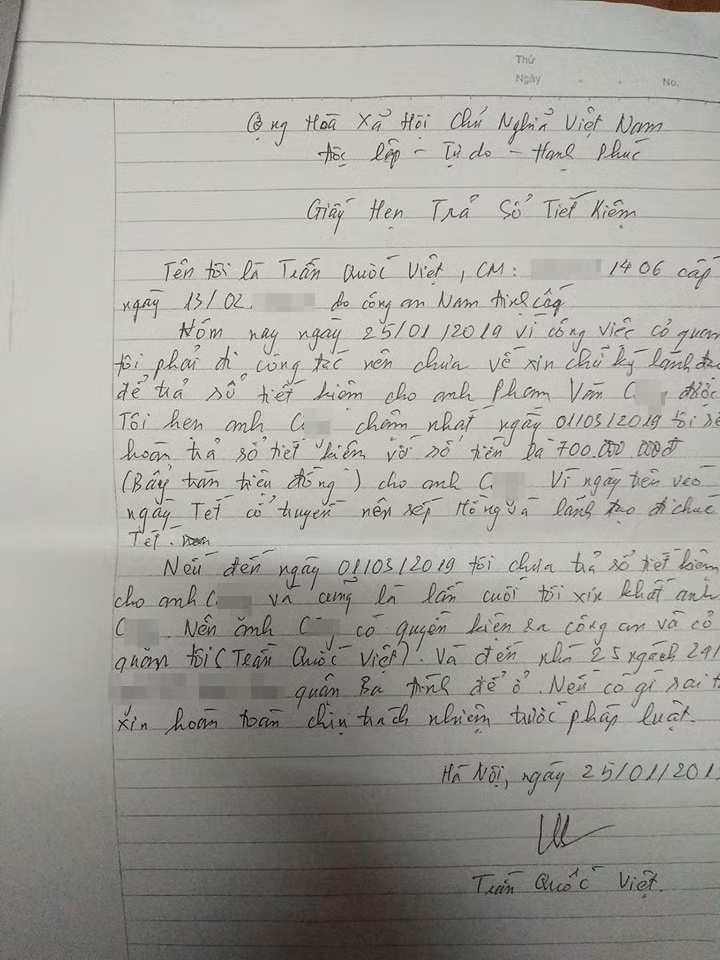 Thứ
Ngày . . No.
Cộng Hoà Xã Hội Chủ Nghĩa Việt Nam
Độc lập - Tự do - Hạnh Phúc
Giấy Hẹn Trả Sổ Tiết Kiệm
Tên tôi là Trần Quốc Việt, CM: 1406 cấp
ngày 13/02. do công an Nam Định cấp
Hôm nay ngày 25/01/2019 vì công việc cơ quan
tôi phải đi công tác nên chưa về xin chữ ký lãnh đạo
để trả sổ tiết kiệm cho anh Phạm Văn C được
Tôi hẹn anh C chậm nhất ngày 01/03/2019 tôi sẽ
hoàn trả sổ tiết kiệm với số tiền là 700.000.000đ
(Bảy trăm triệu đồng) cho anh C. Vì ngày tiền vào
ngày Tết cổ truyền nên xếp Hồng và lãnh đạo đi chúc
Tết.
Nếu đến ngày 01/03/2019 tôi chưa trả sổ tiết kiệm
cho anh C và cũng là lần cuối tôi xin khất anh
C. Nên anh C có quyền kiện ra công an và cơ
quan tôi (Trần Quốc Việt). Và đến nhà 25 ngách 291
quận Ba Đình để ở. Nếu có gì sai t
xin hoàn toàn chịu trách nhiệm trước pháp luật.
Hà Nội, ngày 25/01/201
Trần Quốc Việt.